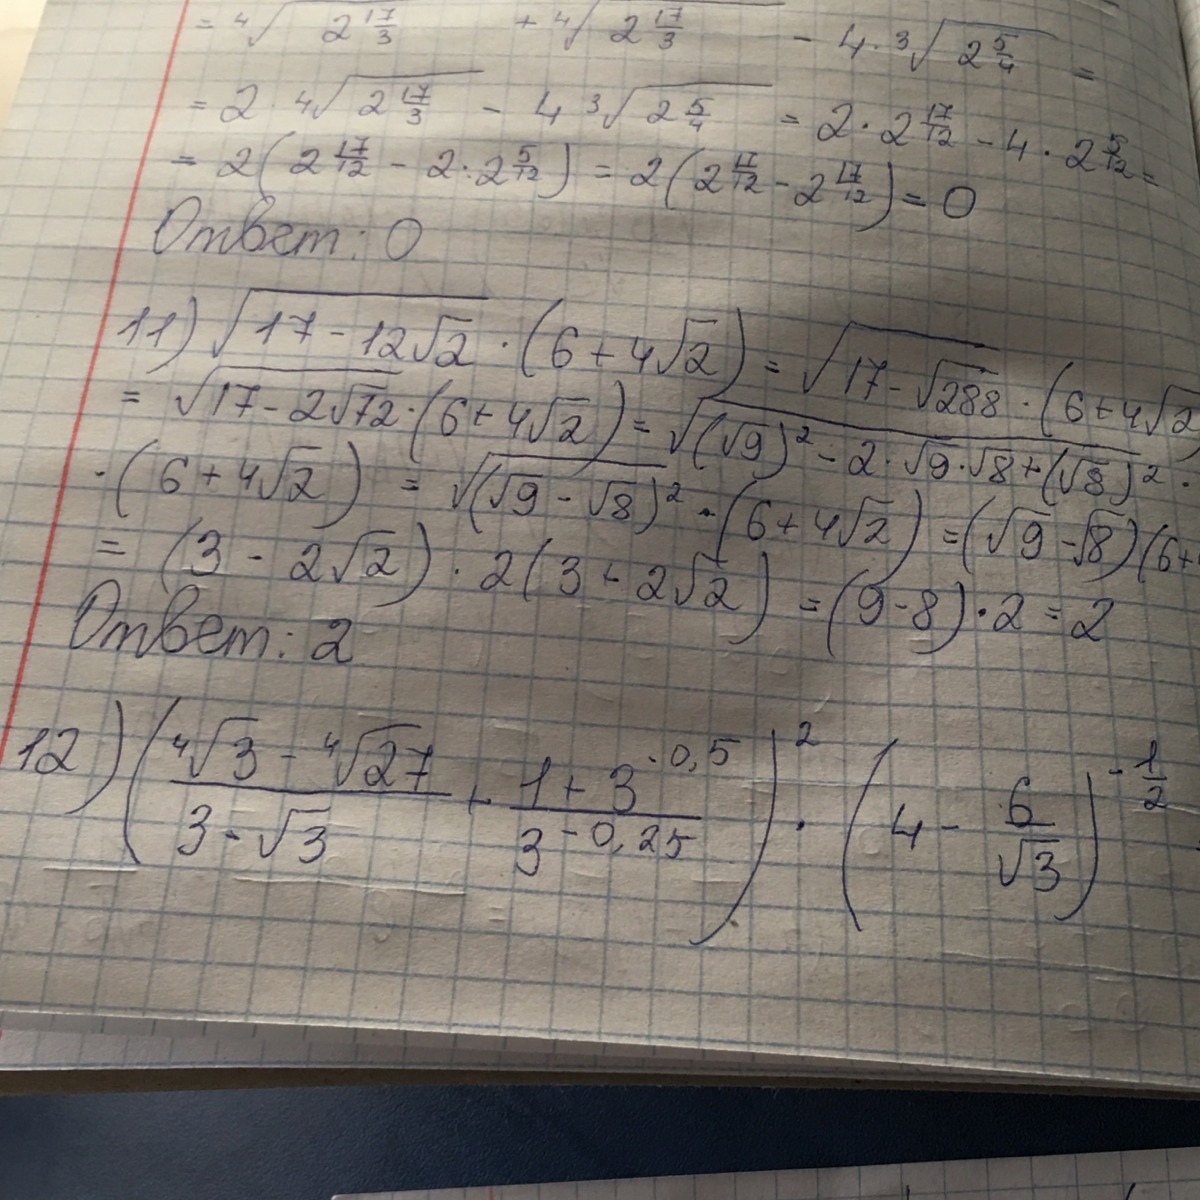 = ⁴√(2^(17/3)) + ⁴√(2^(17/3)) - 4·³√(2^(5/4)) =
= 2·⁴√(2^(17/3)) - 4 ³√(2^(5/4)) = 2·2^(17/12) - 4·2^(5/12) =
= 2(2^(17/12) - 2·2^(5/12)) = 2(2^(17/12) - 2^(17/12)) = 0
Ответ: 0
11) √(17-12√2)·(6+4√2) = √(17-√288)·(6+4√2
= √(17-2√72)·(6+4√2) = √((√9)²-2·√9·√8+(√8)²)·
·(6+4√2) = √((√9-√8)²)·(6+4√2) = (√9-√8)(6+
= (3-2√2)·2(3+2√2) = (9-8)·2 = 2
Ответ: 2
12) ((⁴√3-⁴√27)/(3-√3) + (1+3^(-0,5))/(3^(-0,25)))²·(4-6/√3)^(-1/2)